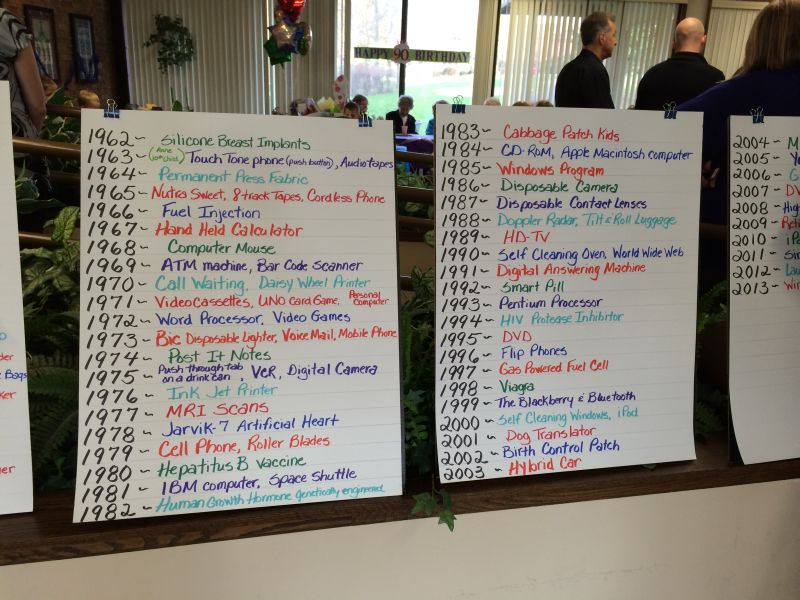 HAPPY 90 BIRTHDAY
der
Bags
ker
ner
1962~ Silicone Breast Implants
1963~ (Anne 10th child) Touch Tone phone (push button), Audiotapes
1964~ Permanent Press Fabric
1965~ Nutra Sweet, 8 track Tapes, Cordless Phone
1966~ Fuel Injection
1967~ Hand Held Calculator
1968~ Computer Mouse
1969~ ATM machine, Bar Code Scanner
1970~ Call Waiting, Daisy Wheel Printer
1971~ Videocassettes, UNO Card Game, Personal Computer
1972~ Word Processor, Video Games
1973~ Bic Disposable Lighter, Voice Mail, Mobile Phone
1974~ Post It Notes
1975~ Push through tab on a drink can, VCR, Digital Camera
1976~ Ink Jet Printer
1977~ MRI Scans
1978~ Jarvik-7 Artificial Heart
1979~ Cell Phone, Roller Blades
1980~ Hepatitus B Vaccine
1981~ IBM computer, Space Shuttle
1982~ Human Growth Hormone genetically engineered
1983~ Cabbage Patch Kids
1984~ CD-ROM, Apple Macintosh computer
1985~ Windows Program
1986~ Disposable Camera
1987~ Disposable Contact Lenses
1988~ Doppler Radar, Tilt & Roll Luggage
1989~ HD-TV
1990~ Self Cleaning Oven, World Wide Web
1991~ Digital Answering Machine
1992~ Smart Pill
1993~ Pentium Processor
1994~ HIV Protease Inhibitor
1995~ DVD
1996~ Flip Phones
1997~ Gas Powered Fuel Cell
1998~ Viagra
1999~ The Blackberry & Bluetooth
2000~ Self Cleaning Windows, iPod
2001~ Dog Translator
2002~ Birth Control Patch
2003~ Hybrid Car
2004~ M
2005~ Yo
2006~ G
2007~ DV
2008~ High
2009~
2010~ iPa
2011~ Sir
2012~ Lau
2013~ Wir